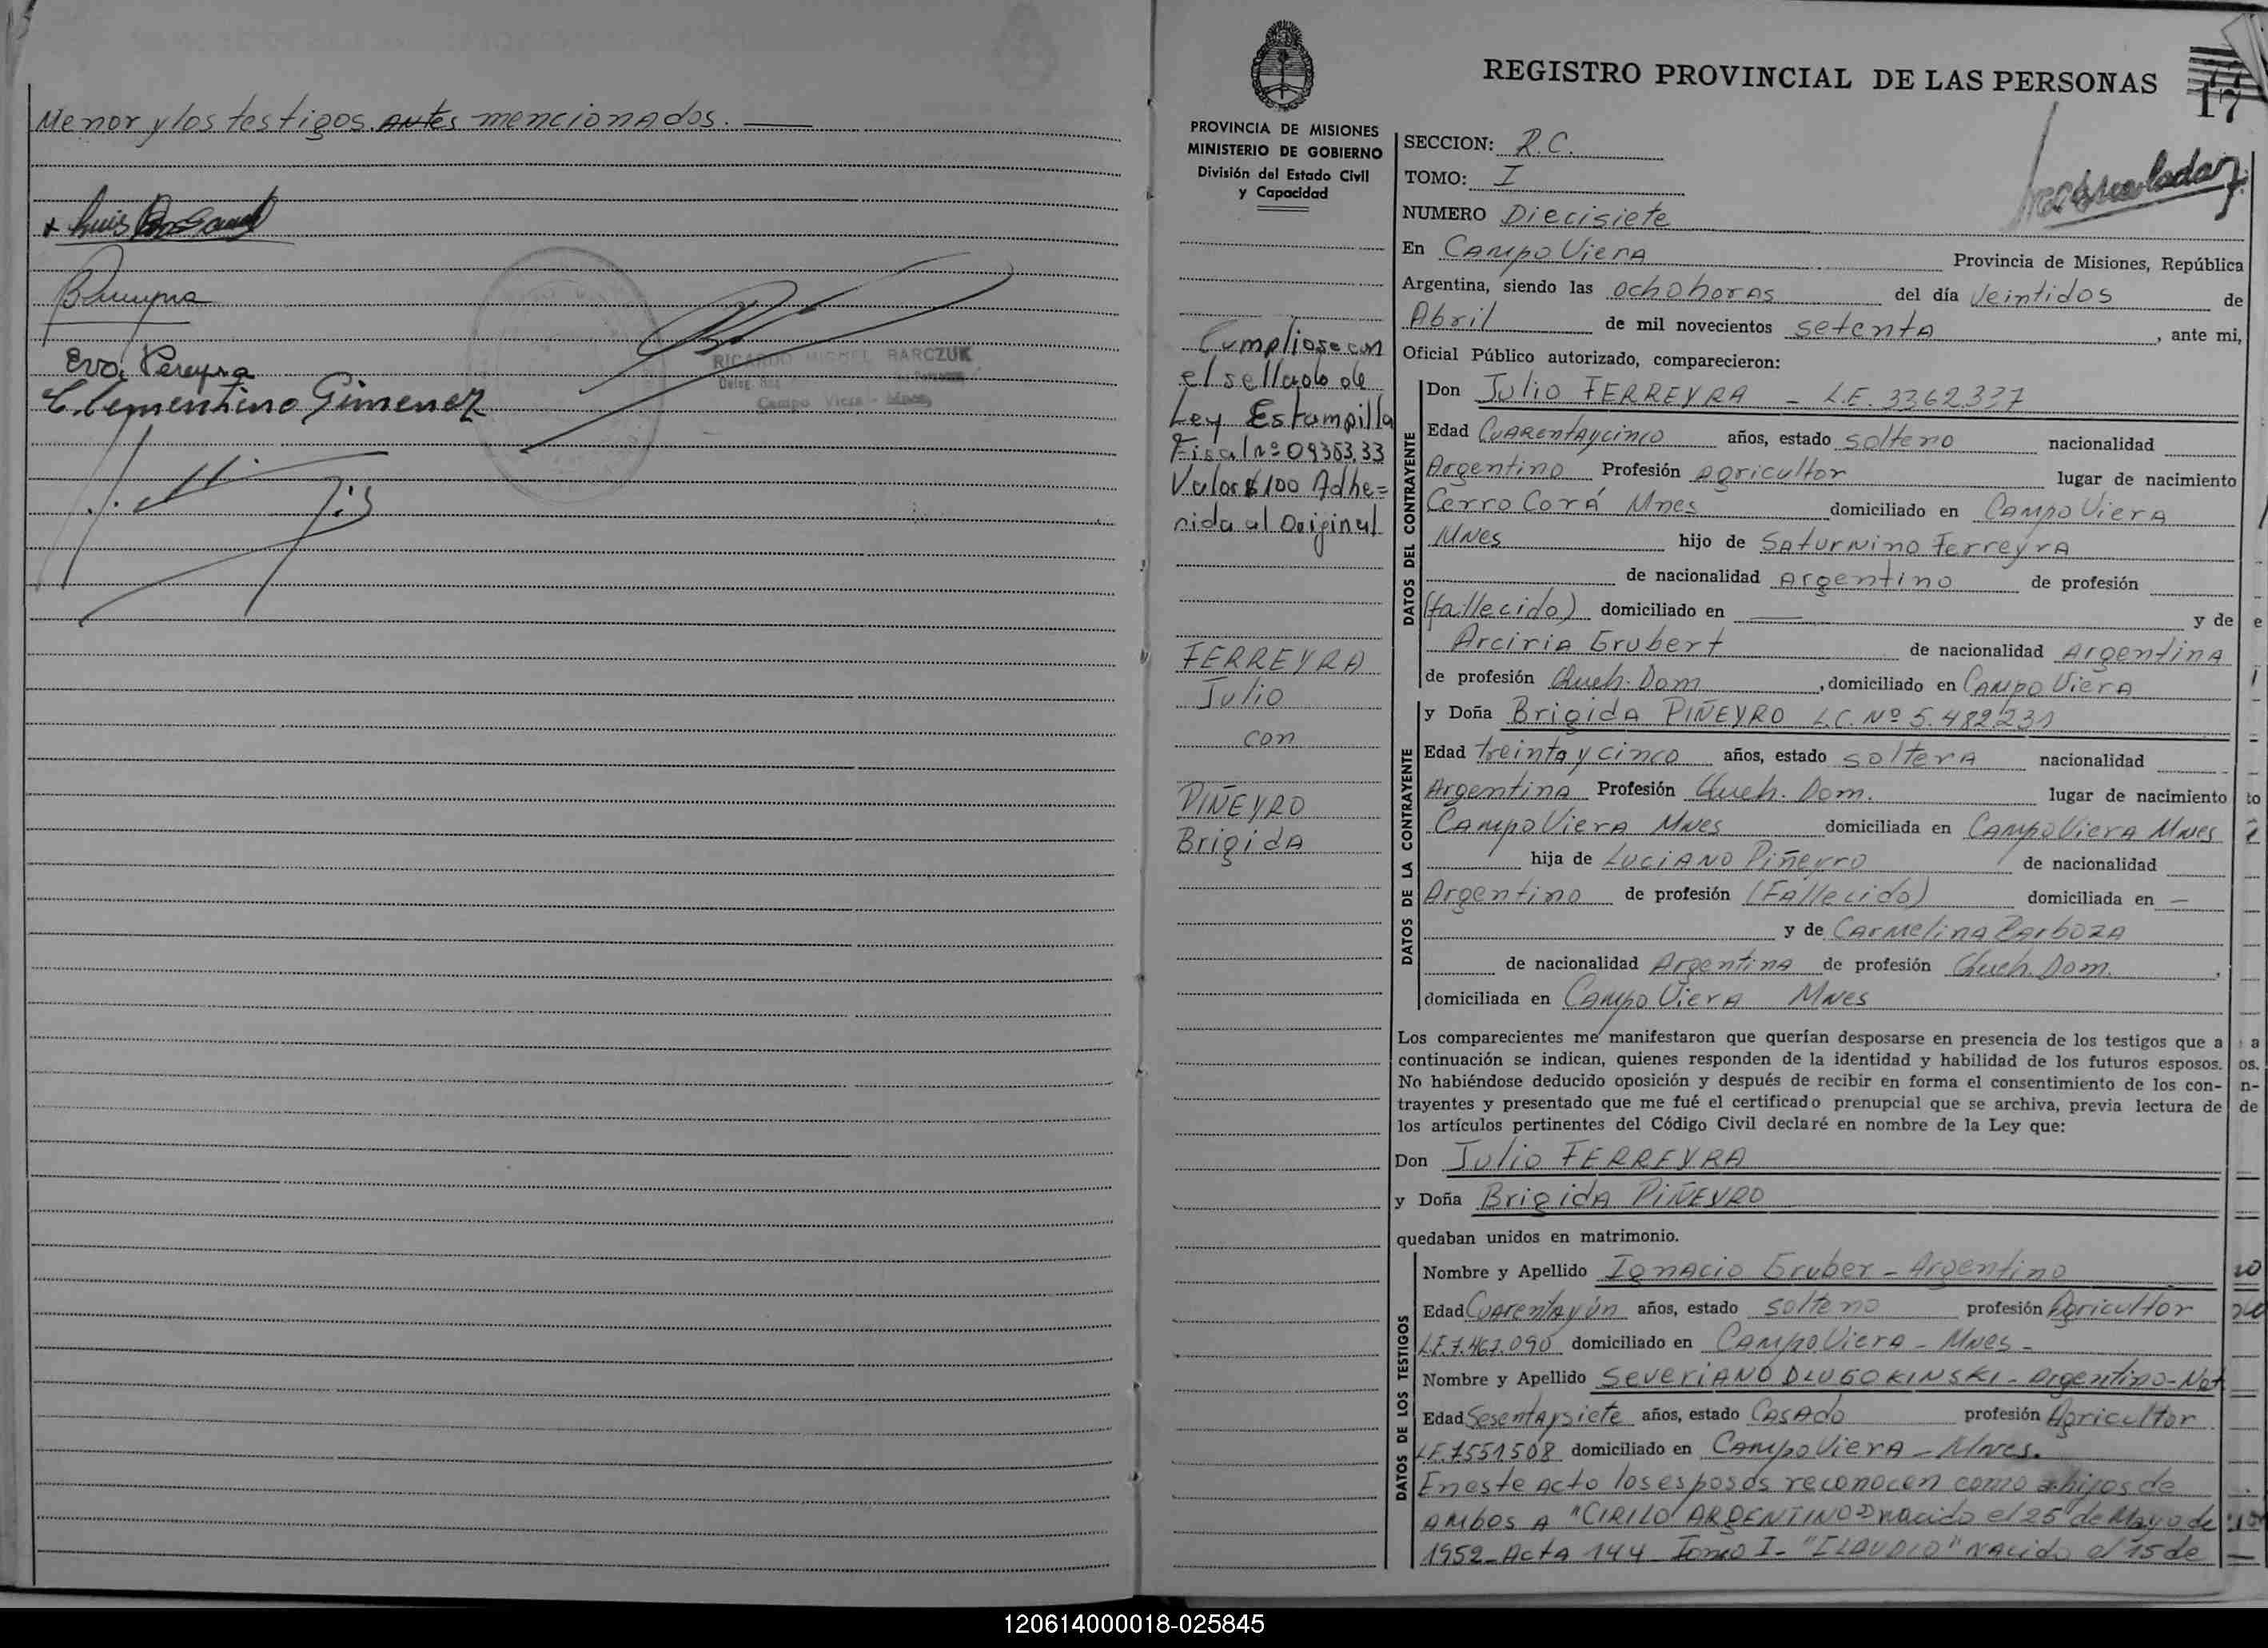 Menor y los testigos antes mencionados.
Luis
Eva Pereyra
Clementino Gimenez
RICARDO MIGUEL BARCZUK
Campo Viera - Mnes
REGISTRO PROVINCIAL DE LAS PERSONAS
17
PROVINCIA DE MISIONES
MINISTERIO DE GOBIERNO
División del Estado Civil
y Capacidad
Cumpliose con
el sellado de
Ley Estampilla
Fiscal Nº 09353.33
Valor $ 100 Adhe=
rida al Original
FERREYRA
Julio
con
PIÑEYRO
Brigida
SECCION: R.C.
TOMO: I
NUMERO Diecisiete
En Campo Viera Provincia de Misiones, República
Argentina, siendo las ocho horas del día veintidos de
Abril de mil novecientos setenta, ante mi,
Oficial Público autorizado, comparecieron:
DATOS DEL CONTRAYENTE
Don Julio FERREYRA - L.E. 3362337
Edad Cuarenta y cinco años, estado soltero nacionalidad
Argentino Profesión Agricultor lugar de nacimiento
Cerro Corá Mnes domiciliado en Campo Viera
Mnes hijo de Saturnino Ferreyra
de nacionalidad Argentino de profesión
(fallecido) domiciliado en — y de
Arciria Grubert de nacionalidad Argentina
de profesión Queh. Dom, domiciliado en Campo Viera
DATOS DE LA CONTRAYENTE
y Doña Brigida PIÑEYRO L.C. Nº 5.482231
Edad treinta y cinco años, estado soltera nacionalidad
Argentina Profesión Queh. Dom. lugar de nacimiento
Campo Viera Mnes domiciliada en Campo Viera Mnes
hija de Luciano Piñeyro de nacionalidad
Argentino de profesión (Fallecido) domiciliada en —
y de Carmelina Barboza
de nacionalidad Argentina de profesión Queh. Dom.,
domiciliada en Campo Viera Mnes
Los comparecientes me manifestaron que querían desposarse en presencia de los testigos que a
continuación se indican, quienes responden de la identidad y habilidad de los futuros esposos.
No habiéndose deducido oposición y después de recibir en forma el consentimiento de los con-
trayentes y presentado que me fué el certificado prenupcial que se archiva, previa lectura de
los artículos pertinentes del Código Civil declaré en nombre de la Ley que:
Don Julio FERREYRA
y Doña Brigida PIÑEYRO
quedaban unidos en matrimonio.
DATOS DE LOS TESTIGOS
Nombre y Apellido Ignacio Gruber - Argentino
Edad Cuarenta y ún años, estado soltero profesión Agricultor
L.E. 7.467.090 domiciliado en Campo Viera - Mnes -
Nombre y Apellido Severiano DLUGOKINSKI - Argentino - Nat
Edad Sesenta y siete años, estado Casado profesión Agricultor
L.E. 7551508 domiciliado en Campo Viera - Mnes.
En este acto los esposos reconocen como hijos de
ambos a "CIRILO ARGENTINO" nacido el 25 de Mayo de
1952 - Acta 144 Tomo I - "CLAUDIO" nacido el 15 de
120614000018-025845